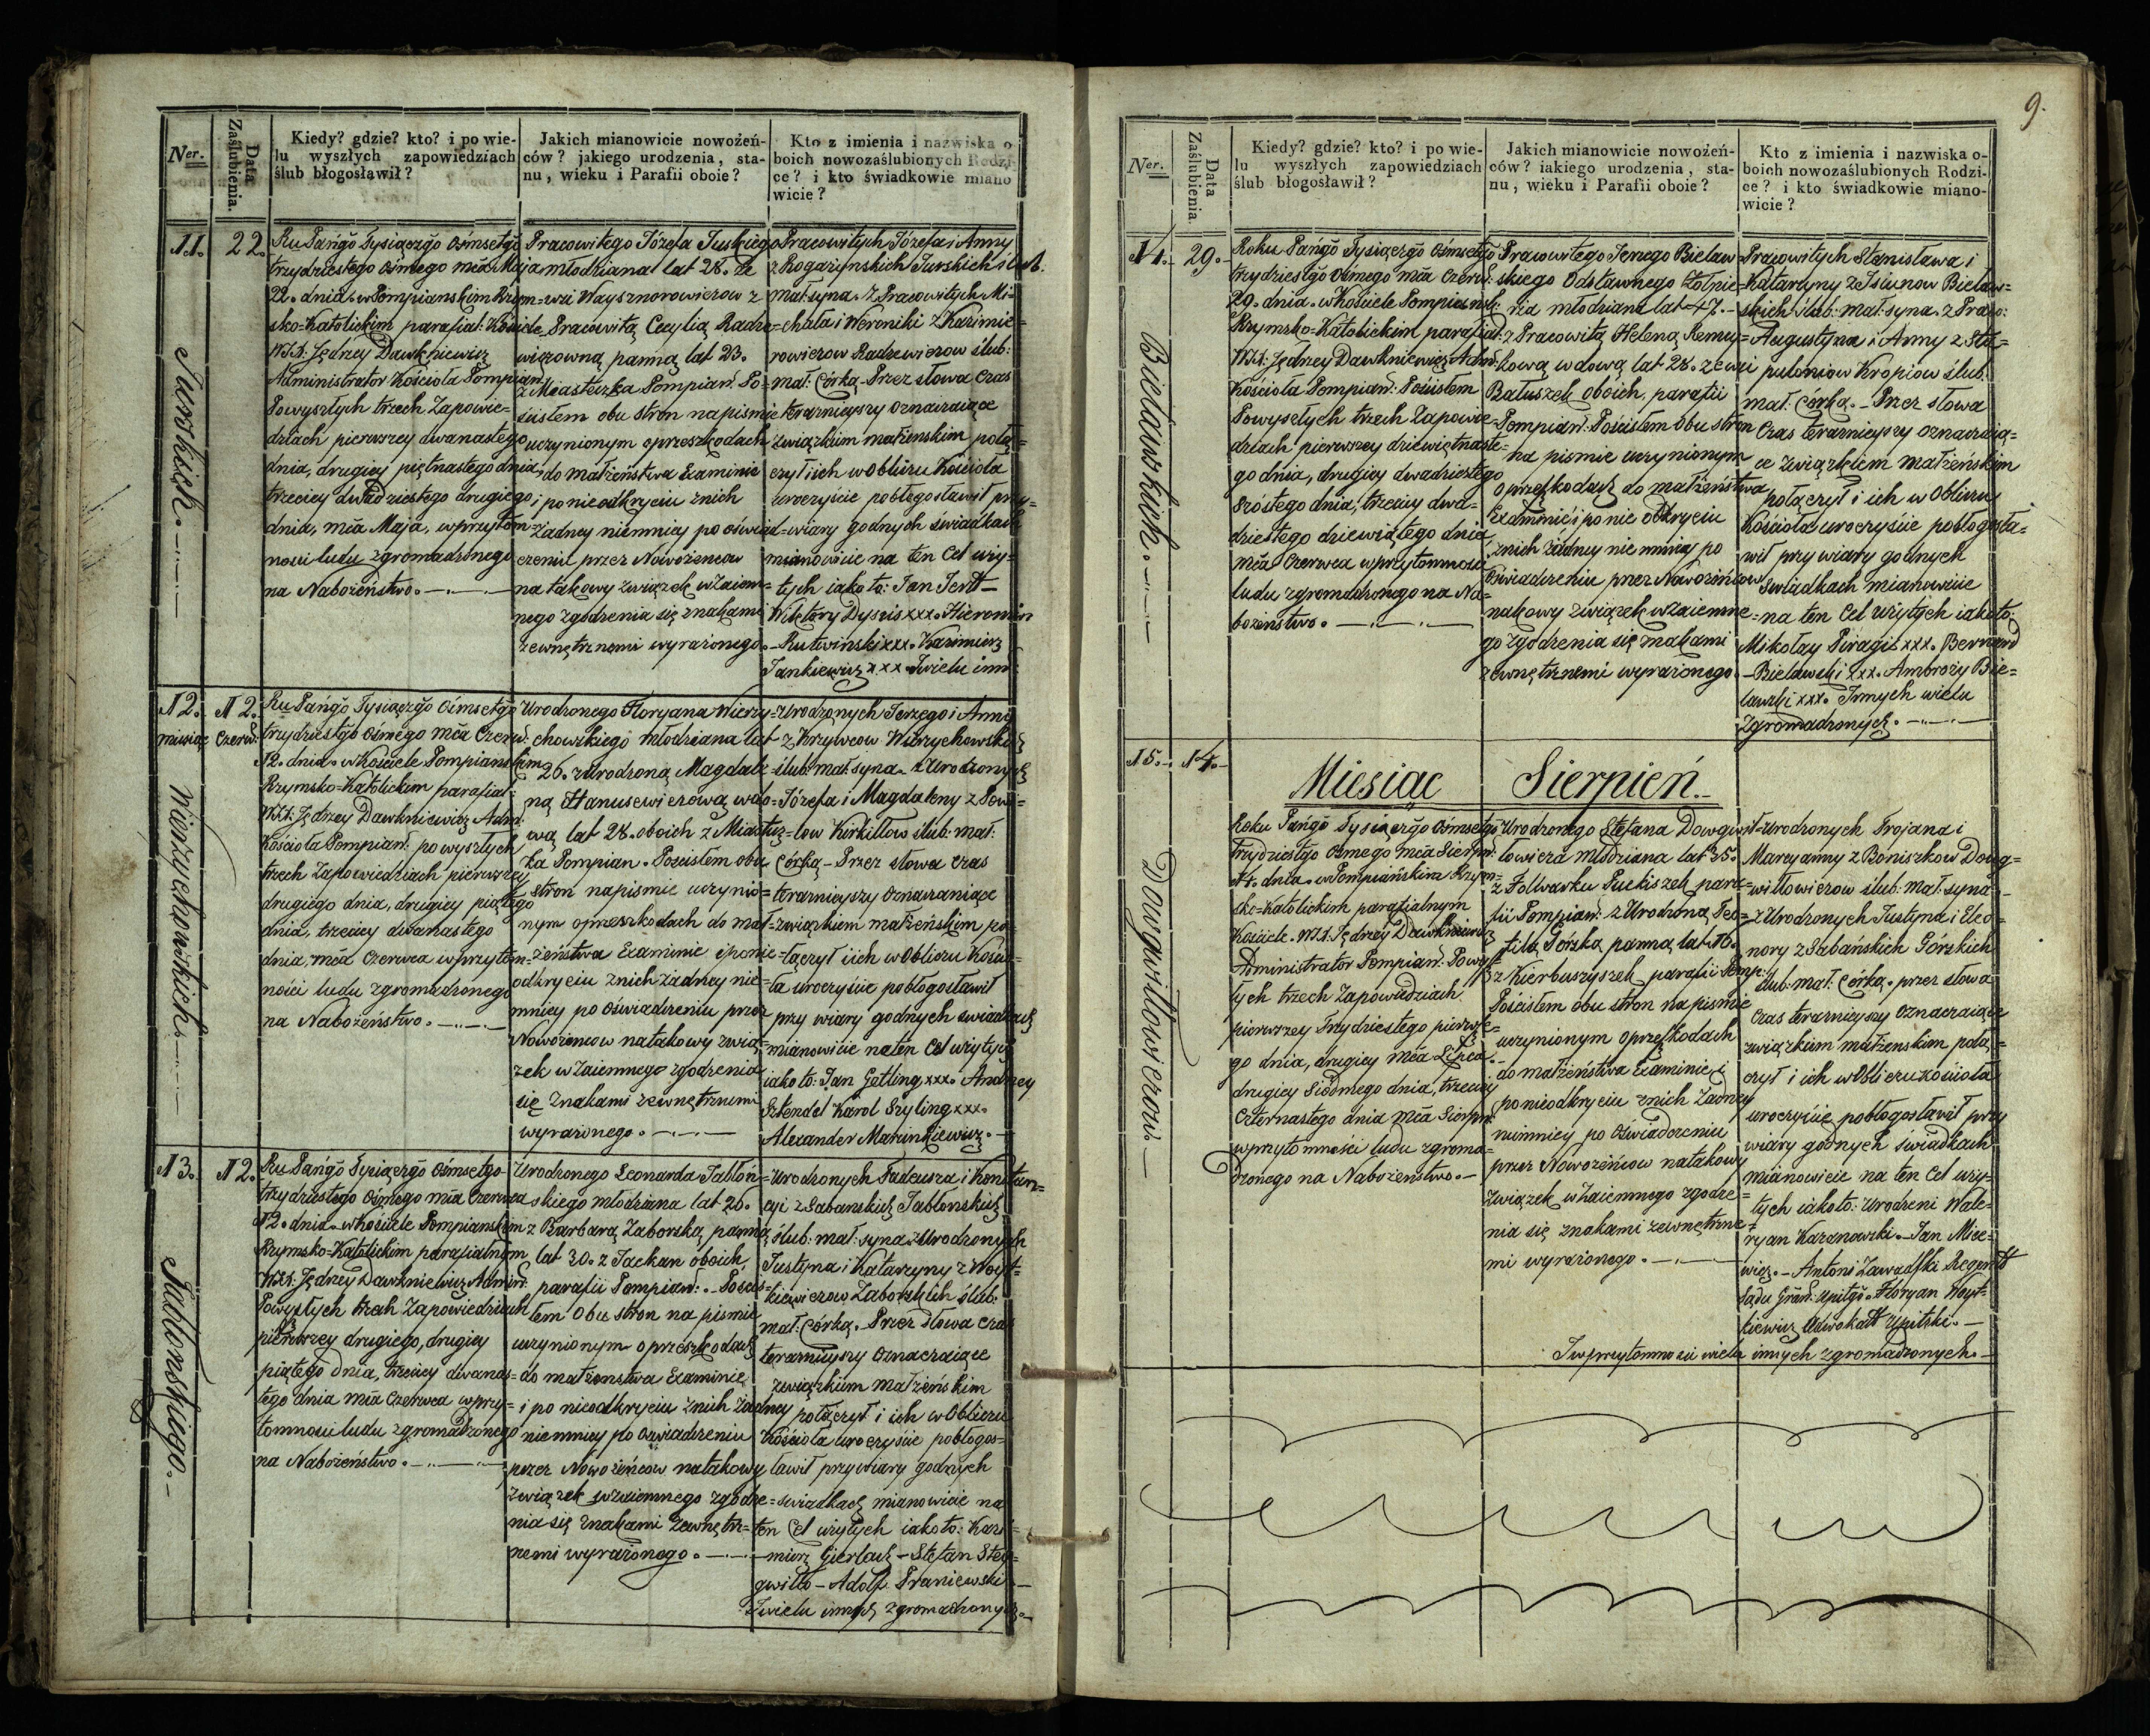 Ner.
Data
Zaślubienia.
Kiedy? gdzie? kto? i po wie-
lu wyszłych zapowiedziach
ślub błogosławił?
Jakich mianowicie nowożeń-
ców? jakiego urodzenia, sta-
nu, wieku i Parafii oboie?
Kto z imienia i nazwiska o
boich nowozaślubionych Rodzi-
ce? i kto świadkowie miano
wicie?
11.
22.
Juskich.
Ru Pańgo Tysiączgo Ośmsetgo
trzydziestego ośmego mca Maja
22. dnia. w Pompianskim Rzym=
sko=Katolickim parafial: Kościele
WJX: Jędrzey Dawkniewicz
Administrator Kościoła Pompian:
Powyszłych trzech Zapowie=
dziach pierwszey dwanastego
dnia, drugiey piętnastego dnia
trzeciey dwadziestego drugiego
dnia, mca Maja, wprzytom=
ności ludu zgromadzonego
na Nabożeństwo.
Pracowitego Józefa Juskiego
młodziana lat 28. ze
wzi Waysznorowierow z
Pracowitą Cecylią Radze=
wiczowną panną lat 23.
z Miasteczka Pompian. Po=
ścisłem obu stron napismie
uczynionym oprzeszkodach
do małżeństwa Examinie
i ponieodkryciu znich
żadney niemniey po oświad=
czeniu przez Nowożeńcow
na takowy związek wzaiem=
nego zgodzenia się znakami
zewnętrznemi wyrażonego.
Pracowitych Józefa i Anny
z Rogażynskich Juskich ślub.
mał: syna. Z Pracowitych Mi=
chała i Weroniki z Kazimie=
rowierow Radzewiczow ślub:
mał: Córką. Przez słowa czas
teraznieyszy oznaczaiące
związkiem małżenskim połą=
czył iich w Obliczu Kościoła
uroczyście pobłogosławił przy
wiary godnych świadkach
mianowicie na ten Cel uży=
tych iako to: Jan Jent
Wiktory Dyszis xxx. Hieronim
Rutwinski xxx. Kazimierz
Jankiewicz xxx. I wielu inn:
12.
miesiąc
12.
Czerw:
Wierzychowskich.
Ru Pańgo Tysiączgo Ośmsetgo
trzydziestgo ośmego mca Czerw:
12. dnia. w Kościele Pompianskim
Rzymsko=Katolickim parafial:
WJX: Jędrzey Dawkniewicz Adm:
Kościoła Pompian: powyszłych
trzech Zapowiedziach pierwszey
drugiego dnia, drugiey piątego
dnia, trzeciey dwanastego
dnia, mca Czerwca wprzytom=
ności ludu zgromadzonego
na Nabożeństwo.
Urodzonego Floryana Wierzy=
chowskiego młodziana lat
26. z Urodzoną Magdale
ną Hanusewiczową wdo=
wą lat 28. oboich z Miastecz=
ka Pompian. Pościsłem obu
stron napismie uczynio=
nym oprzeszkodach do mał=
żeństwa Examinie i ponie=
odkryciu znich żadney nie=
mniey po oświadczeniu przez
Nowożeńcow natakowy zwią=
zek wzaiemnego zgodzenia
się znakami zewnętrznemi
wyrażonego.
Urodzonych Jerzego i Anny
z Krzywcow Wierzychowskich
ślub: mał: syna. z Urodzonych
Józefa i Magdaleny z Pow=
low Kirkiłłow ślub: mał:
Córką. Przez słowa czas
teraznieyszy oznaczaiące
związkiem małżeńskim po=
łączył iich w Obliczu Kościo=
ła uroczyście pobłogosławił
przy wiary godnych świadkach
mianowicie naten Cel użytych
iako to: Jan Getling xxx. Andrzey
Sztendel Karol Szyling xxx.
Alexander Marinkiewicz.
13.
12.
Jabłonskiego.
Ru Pańgo Tysiączgo Ośmsetgo
trzydziestego Ośmego mca Czerwca
12. dnia. w Kościele Pompianskim
Rzymsko=Katolickim parafialnym
WJX: Jędrzey Dawkniewicz Admin:
Powyszłych trzech Zapowiedziach
pierwszey drugiego, drugiey
piątego dnia, trzeciey dwanas=
tego dnia mca Czerwca wprzy=
tomności ludu zgromadzonego
na Nabożeństwo.
Urodzonego Leonarda Jabłoń=
skiego młodziana lat 26.
z Barbarą Zaborską, panną
lat 30. z Jackan oboich,
parafii Pompian: Pościs=
łem Obu stron na pismie
uczynionym oprzeszkodach
do małżenstwa Examinie
i po nieodkryciu znich żadney
niemniey po oświadczeniu
przez Nowożeńcow natakowy
związek wzaiemnego zgodze=
nia się znakami zewnętrz=
nemi wyrażonego.
Urodzonych Tadeusza i Konstan=
cyi z Sabanskich Jabłonskich
ślub: mał: syna z Urodzonych
Justyna i Katarzyny z Woyt=
kiewiczow Zaborskich ślub:
mał: Córką. Przez słowa czas
teraznieyszy oznaczaiące
związkiem małżeńskim
połączył i ich w Obliczu
Kościoła uroczyście pobłogos=
ławił przy wiary godnych
świadkach mianowicie na
ten Cel użytych iako to: Kazi=
mierz Gierlach – Stefan Ste=
gwiłło – Adolf Praniewski
I wielu innych zgromadzonych.
9.
Ner.
Data
Zaślubienia.
Kiedy? gdzie? kto? i po wie-
lu wyszłych zapowiedziach
ślub błogosławił?
Jakich mianowicie nowożeń-
ców? iakiego urodzenia, sta-
nu, wieku i Parafii oboie?
Kto z imienia i nazwiska o-
boich nowozaślubionych Rodzi-
ce? i kto świadkowie miano-
wicie?
14.
29.
Bielawskich.
Roku Pańgo Tysiączgo Ośmsetgo
trzydziestgo Ośmego mca Czerw:
29. dnia. w Kościele Pompiansk:
Rzymsko=Katolickim parafial:
WJX: Jędrzey Dawkniewicz Adm:
Kościoła Pompian: Pościsłem
Powyszłych trzech Zapowie=
dziach pierwszey dziewiętnaste=
go dnia, drugiey dwadziestego
szóstego dnia, trzeciey dwa=
dziestego dziewiątego dnia
mca Czerwca wprzytomności
ludu zgromadzonego na Na=
bożeństwo.
Pracowitego Jerzego Bielaw
skiego Odstawnego Żołnie=
rza młodziana lat 47.
z Pracowitą Heleną Remey=
kową wdową lat 28. ze wzi
Bałuszek oboich, parafii
Pompian: Pościsłem Obu stron
na pismie uczynionym
oprzeszkodach do małżeństwa
Examinie i po nie odkryciu
znich żadney nie mniey po
Oświadczeniu przez Nowożeńcow
nakowy związek wzaiemne=
go zgodzenia się znakami
zewnętrznemi wyrażonego.
Pracowitych Stanisława i
Katarzyny z Isiunow Bielaw=
skich ślub: mał: syna. z Praco:
Augustyna i Anny z Ste=
puloniow Kropiow ślub:
mał: Córką. Przez słowa
Czas teraznieyszy oznaczaią=
ce związkiem małżeńskim
połączył i ich w Obliczu
Kościoła uroczyście pobłogosła=
wił przy wiary godnych
świadkach mianowicie
na ten Cel użytych iako to:
Mikołay Piragis xxx. Bernard
Bielawski xxx. Ambroży Bie=
lawski xxx. Innych wielu
Zgromadzonych.
15.
14.
Dowgwiłłowiczow.
Miesiąc Sierpień.
Roku Pańgo Tysiączgo Ośmsetgo
trzydziestgo Ośmego mca Sierpn:
14. dnia. w Pompiańskim Rzym=
sko=Katolickim parafialnym
Kościele. WJX: Jędrzey Dawkniewicz
Administrator Pompian: Powysz
łych trzech Zapowiedziach
pierwszey Trzydziestego pierwsze=
go dnia, drugiey mca Lipca.
drugiey Siódmego dnia, trzeciey
Czternastego dnia mca Sierpn:
wprzytomności ludu zgroma=
dzonego na Nabożeństwo.
Urodzonego Stefana Dowgwił=
łowicza młodziana lat 35.
z Folwarku Puckiszek para=
fii Pompian: z Urodzoną Teo=
filą Górską panną lat 16.
z Kierbuszyszek parafii Pomp:
Pościsłem obu stron na pismie
uczynionym oprzeszkodach
do małżeństwa Examinie i
ponieodkryciu znich Żadney
niemniey po oświadczeniu
przez Nowożeńcow natakowy
związek wzaiemnego zgodze=
nia się znakami zewnętrzne=
mi wyrażonego.
Urodzonych Trojana i
Marcyanny z Boniszkow Dowg=
wiłłowiczow ślub: mał: syna.
z Urodzonych Justyna i Eleo=
nory z Sabańskich Górskich
ślub: mał: Córką. przez słowa
Czas teraznieyszy oznaczaiące
związkiem małżenskim połą=
czył i ich w Obliczu kościoła
uroczyście pobłogosławił przy
wiary godnych świadkach
mianowicie na ten Cel uży=
tych iako to: Urodzeni Wale=
ryan Kazanowski. Jan Mice=
wicz. – Antoni Zawadski Regent
Sądu Gran: Upitgo. Floryan Woyt=
kiewicz Adwokatt Upitski.
I wprzytomności wielu innych zgromadzonych.